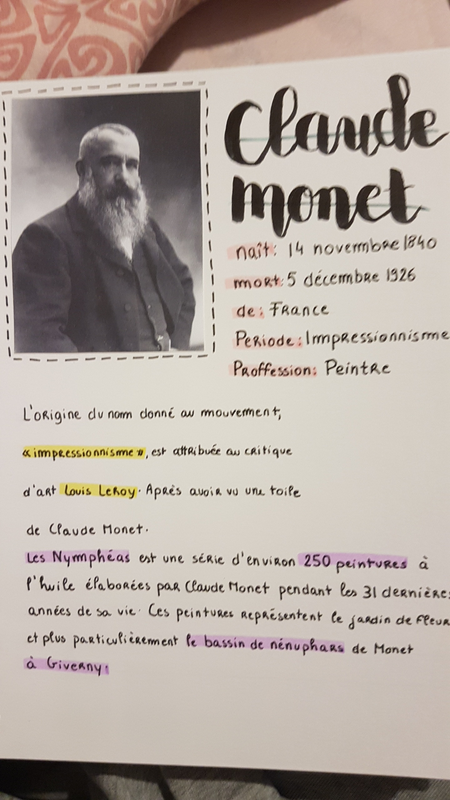 Claude
monet
naît: 14 novembre 1840
mort: 5 décembre 1926
de: France
Periode: Impressionnisme
Proffession: Peintre
L'origine du nom donné au mouvement,
« impressionnisme », est attribuée au critique
d'art Louis Leroy. Après avoir vu une toile
de Claude Monet.
Les Nymphéas est une série d'environ 250 peintures à
l'huile élaborées par Claude Monet pendant les 31 dernières
années de sa vie. Ces peintures représentent le jardin de fleur
et plus particulièrement le bassin de nénuphars de Monet
à Giverny.